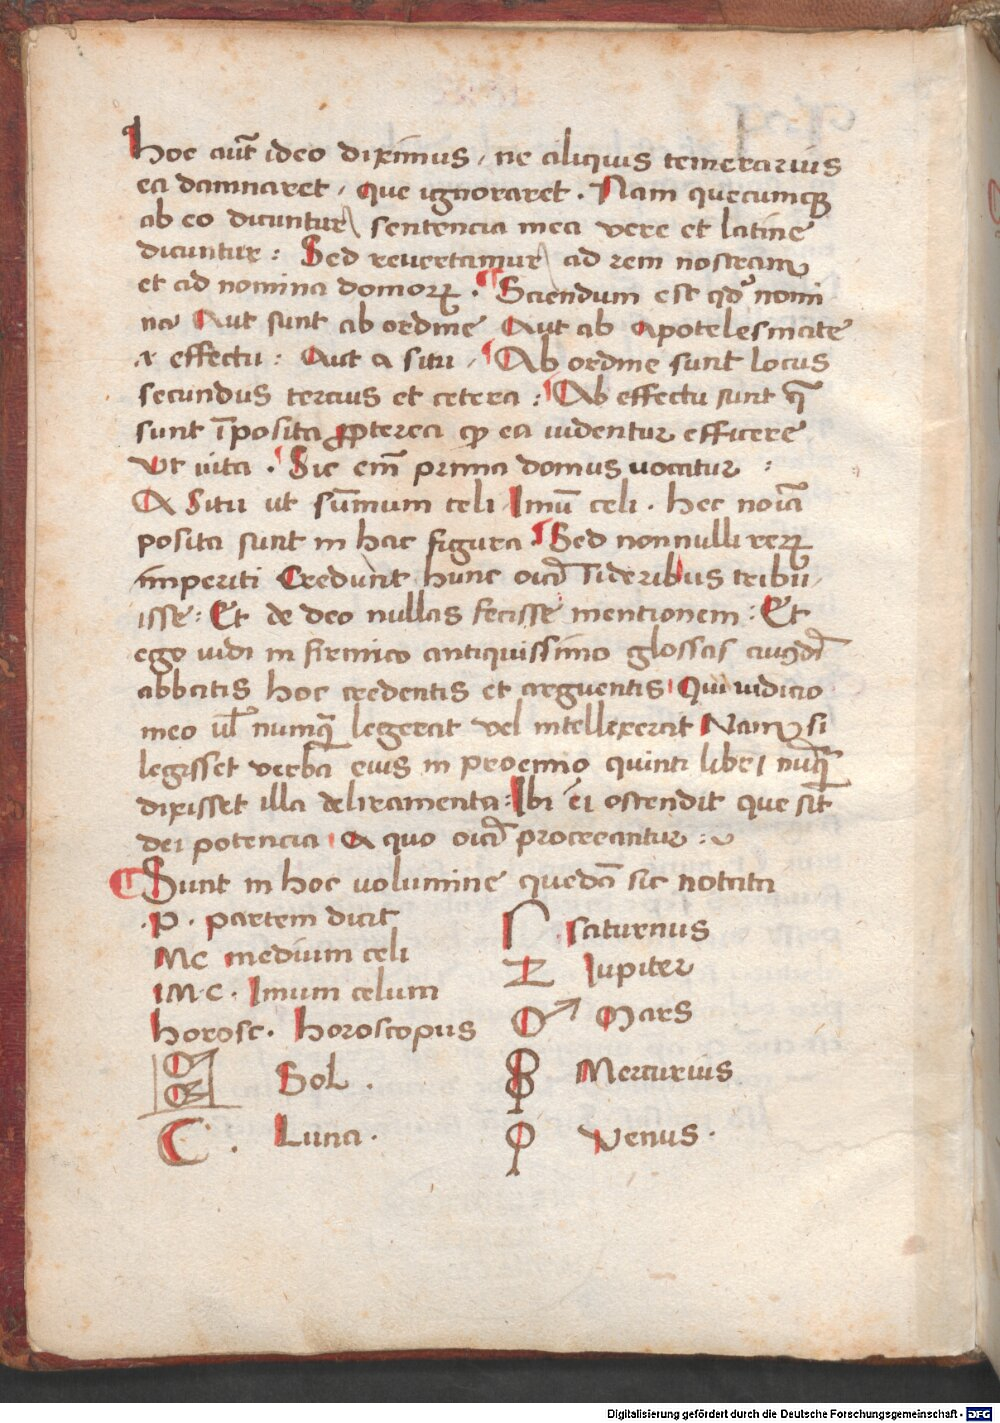 Hoc aut̄ ideo diximus / ne aliquis temerarius
ea damnaret / que ignoraret . Nam quecumqꝫ
ab eo dicuntur / sentencia mea vere et latine
dicuntur : Sed revertamur / ad rem nostram
et ad nomina domorꝝ . Sciendum est qd' nomi
na Aut sunt ab ordine Aut ab Apotelesmate
effectu : Aut a situ / Ab ordine sunt locus
secundus tercius et cetera : Ab effectu sunt q̄
sunt īposita ꝓpterea ea videntur efficere
Ut vita . Sic em̄ prima domus vocatur :
A Situ ut sūmum celi Imū celi . hec noīa
posita sunt in hac figura . Sed nonnulli rerꝝ
imperiti Credunt hunc oīa sideribus tribu
isse : Et de deo nullas fecisse mentionem : Et
ego vidi in firmico antiquissimo glossas
abbatis hoc credentis et arguentis Qui iudicio
meo ul' numq̄ legerat vel intellexerat Nam si
legisset verba eius in proemio quinti libri nūq̄
dixisset illa deliramenta : Ibi ei ostendit que sit
dei potencia A quo oīa procreantur :
Sunt in hoc volumine quedā sic notata
.P. partem dicit
MC medium celi
IM.C. Imum celum
horosc. horoscopus
Sol .
C . Luna .
saturnus
Jupiter
♂ Mars
☿ Mercurius
♀ Venus .
Digitalisierung gefördert durch die Deutsche Forschungsgemeinschaft - DFG